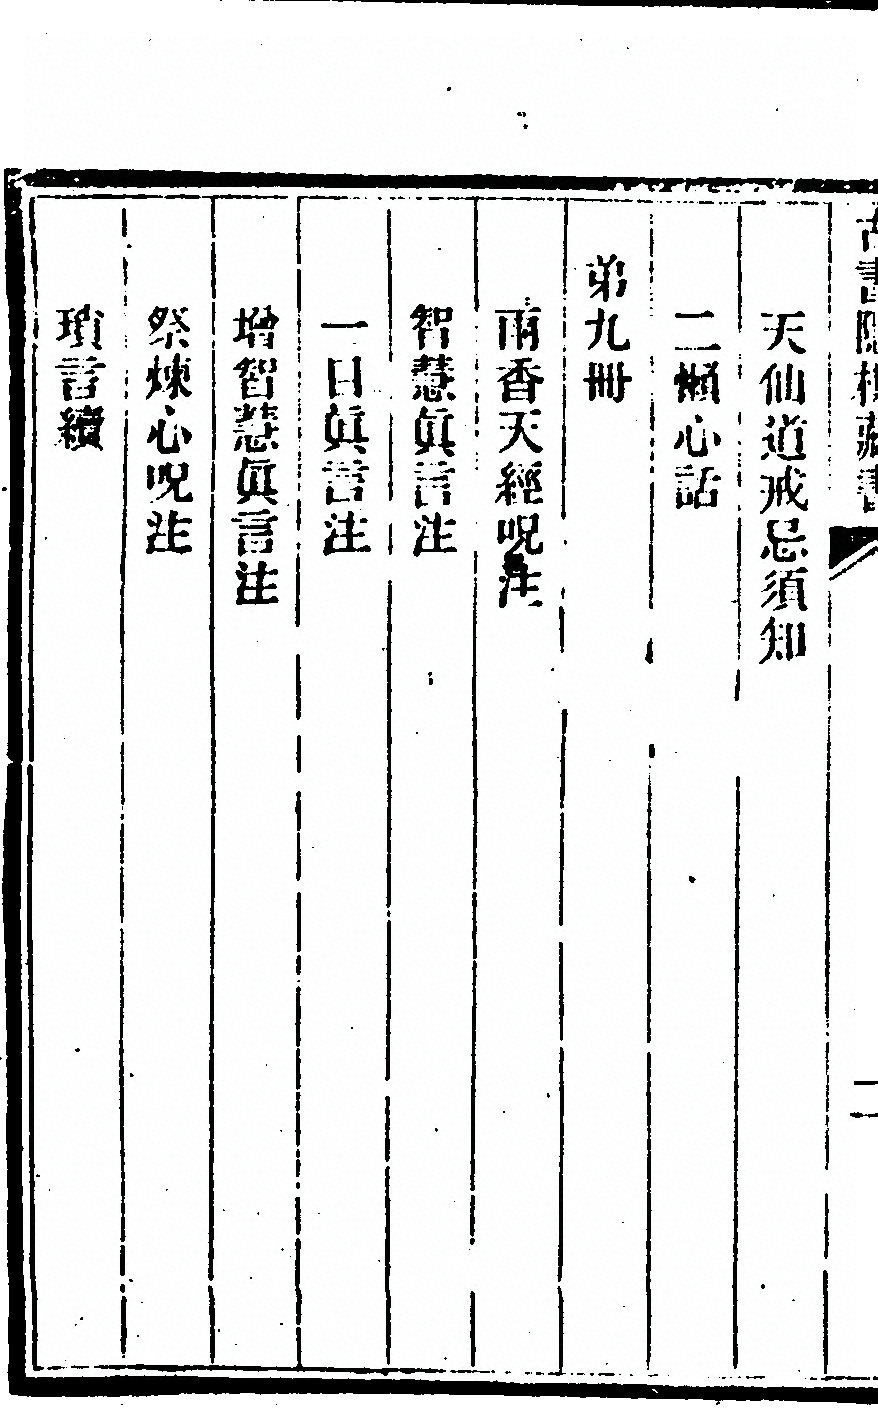 古書隱樓藏書
二
天仙道戒忌須知
二懶心話
弟九冊
雨香天經呪注
智慧眞言注
一日眞言注
增智慧眞言注
祭煉心呪注
瑣言續